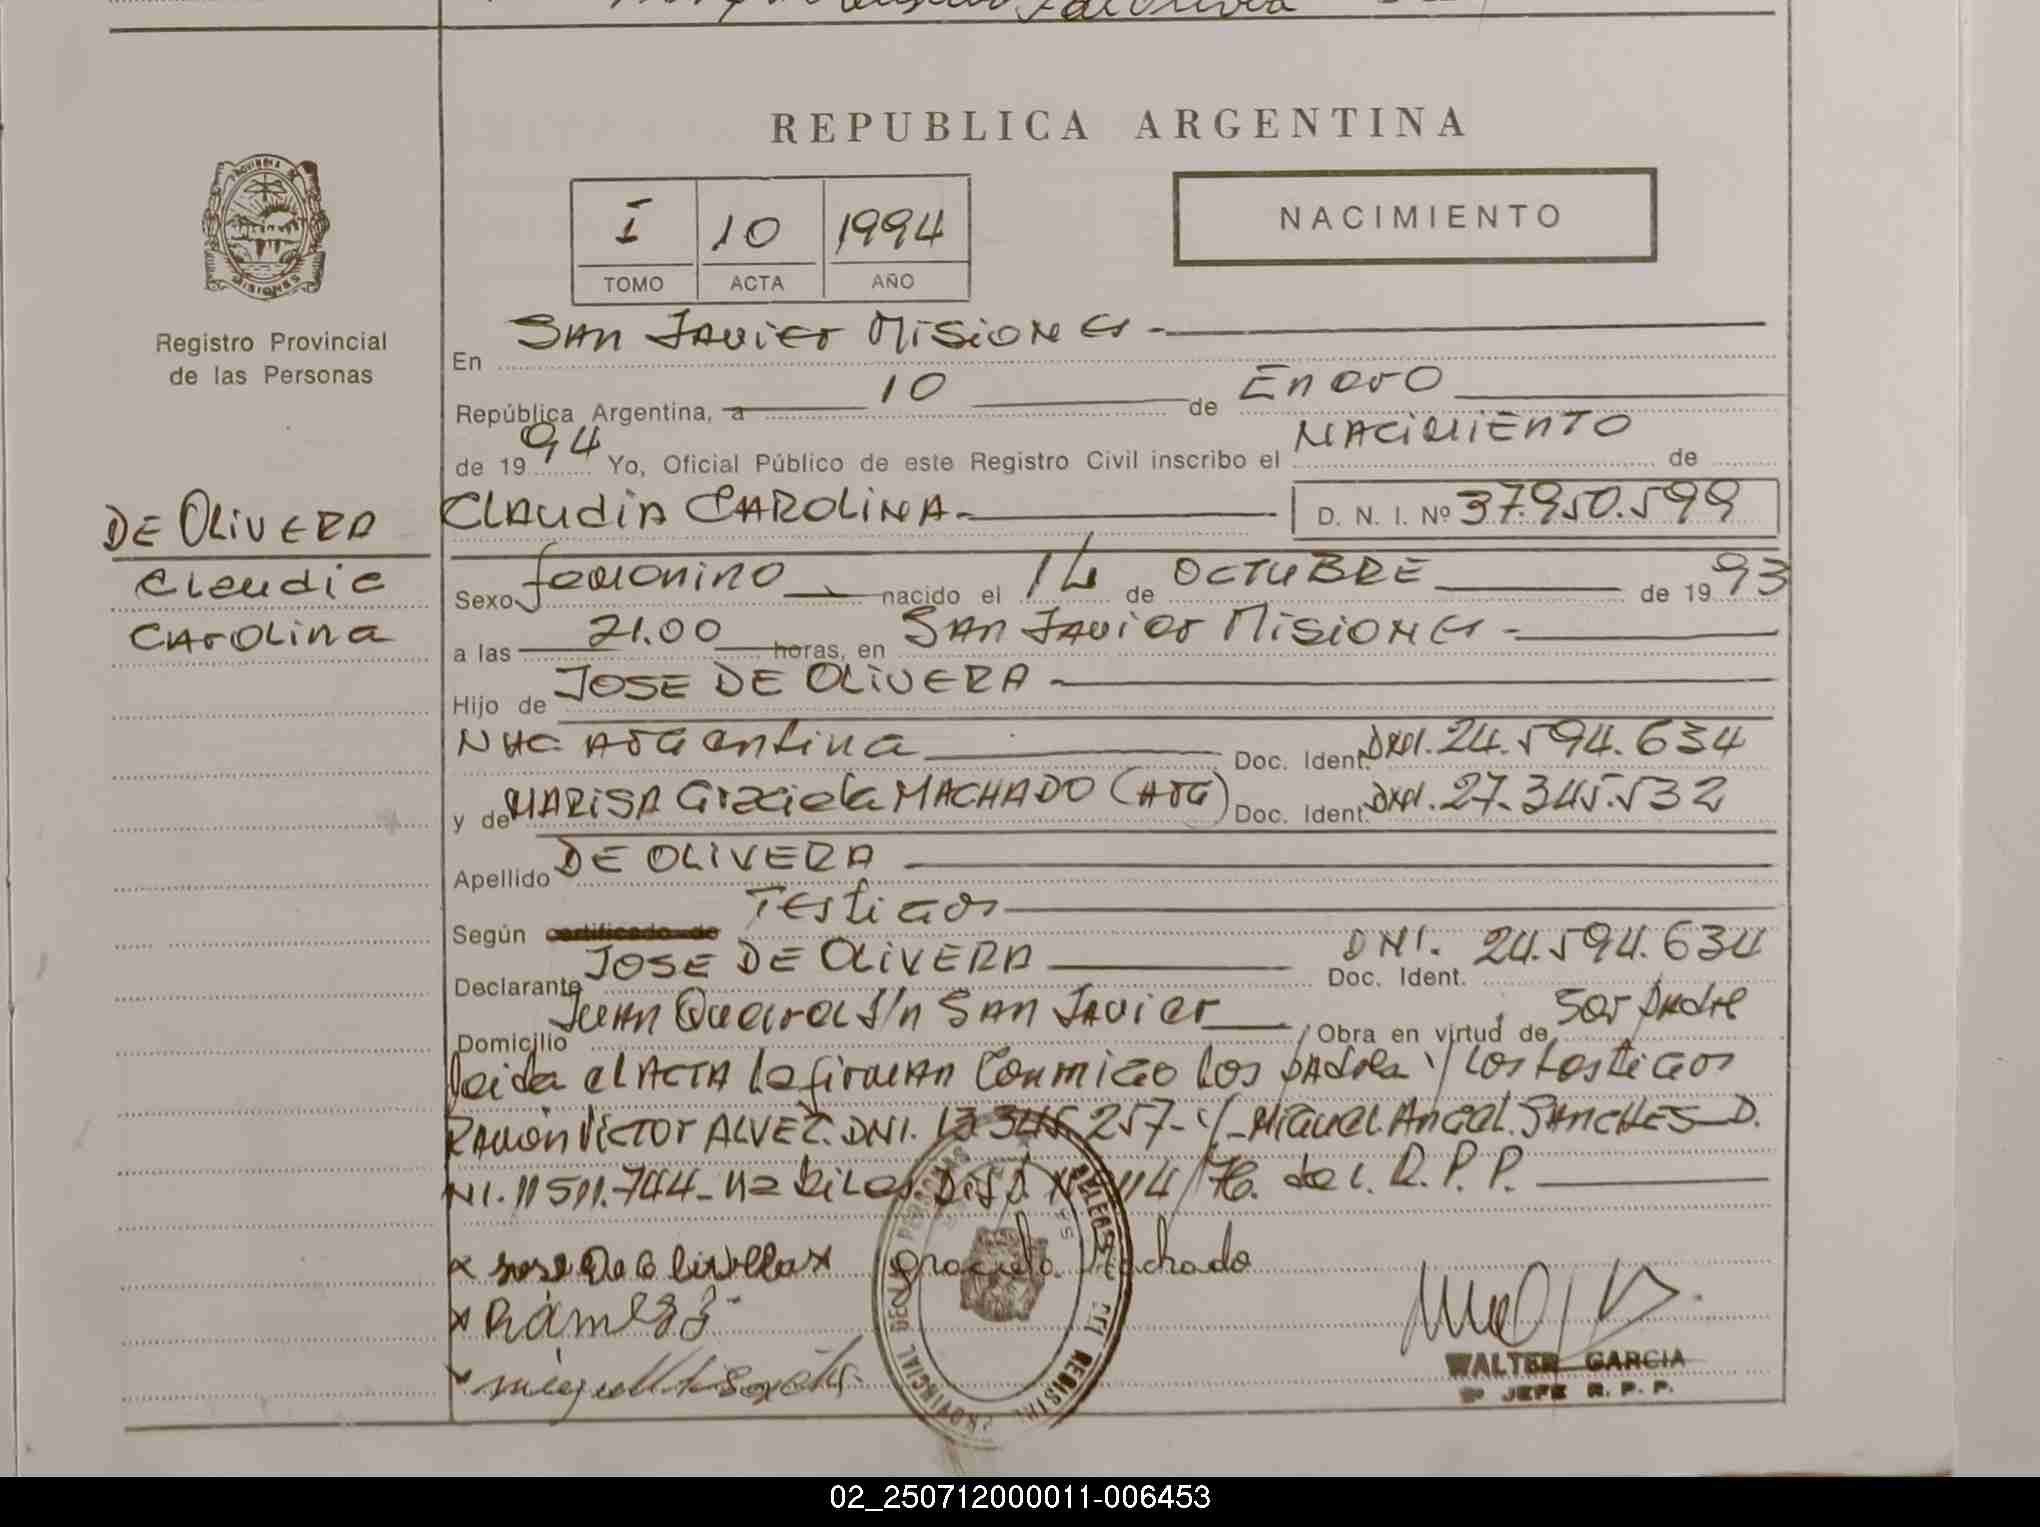 REPUBLICA ARGENTINA
PROVINCIA DE
MISIONES
Registro Provincial
de las Personas
I 10 1994
TOMO ACTA AÑO
NACIMIENTO
En San Javier Misiones
República Argentina, a 10 de Enero
de 1994 Yo, Oficial Público de este Registro Civil inscribo el NACIMIENTO de
DE OLIVERA
Claudia
Carolina
Claudia CAROLINA D. N. I. Nº 37.950.599
Sexo femenino nacido el 14 de OCTUBRE de 1993
a las 21.00 horas, en San Javier Misiones
Hijo de JOSE DE OLIVERA
Nac. Argentina Doc. Ident. DNI. 24.594.634
y de MARISA Graciela MACHADO (Arg) Doc. Ident. DNI. 27.345.532
Apellido DE OLIVERA
Según certificado de Testigos
Declarante JOSE DE OLIVERA Doc. Ident. DNI. 24.594.634
Domicilio Juan S/n San Javier Obra en virtud de Ser Padre
Leida el ACTA la firman Conmigo los padres y los testigos
Ramón Victor ALVEZ. DNI. 13.345.257- y Miguel Angel SANCHES D.
NI. 11.511.744 del R.P.P.
Graciela Machado
PROVINCIAL DE
PERSONAS
DEL REGISTRO
WALTER GARCIA
JEFE R. P. P.
02_250712000011-006453